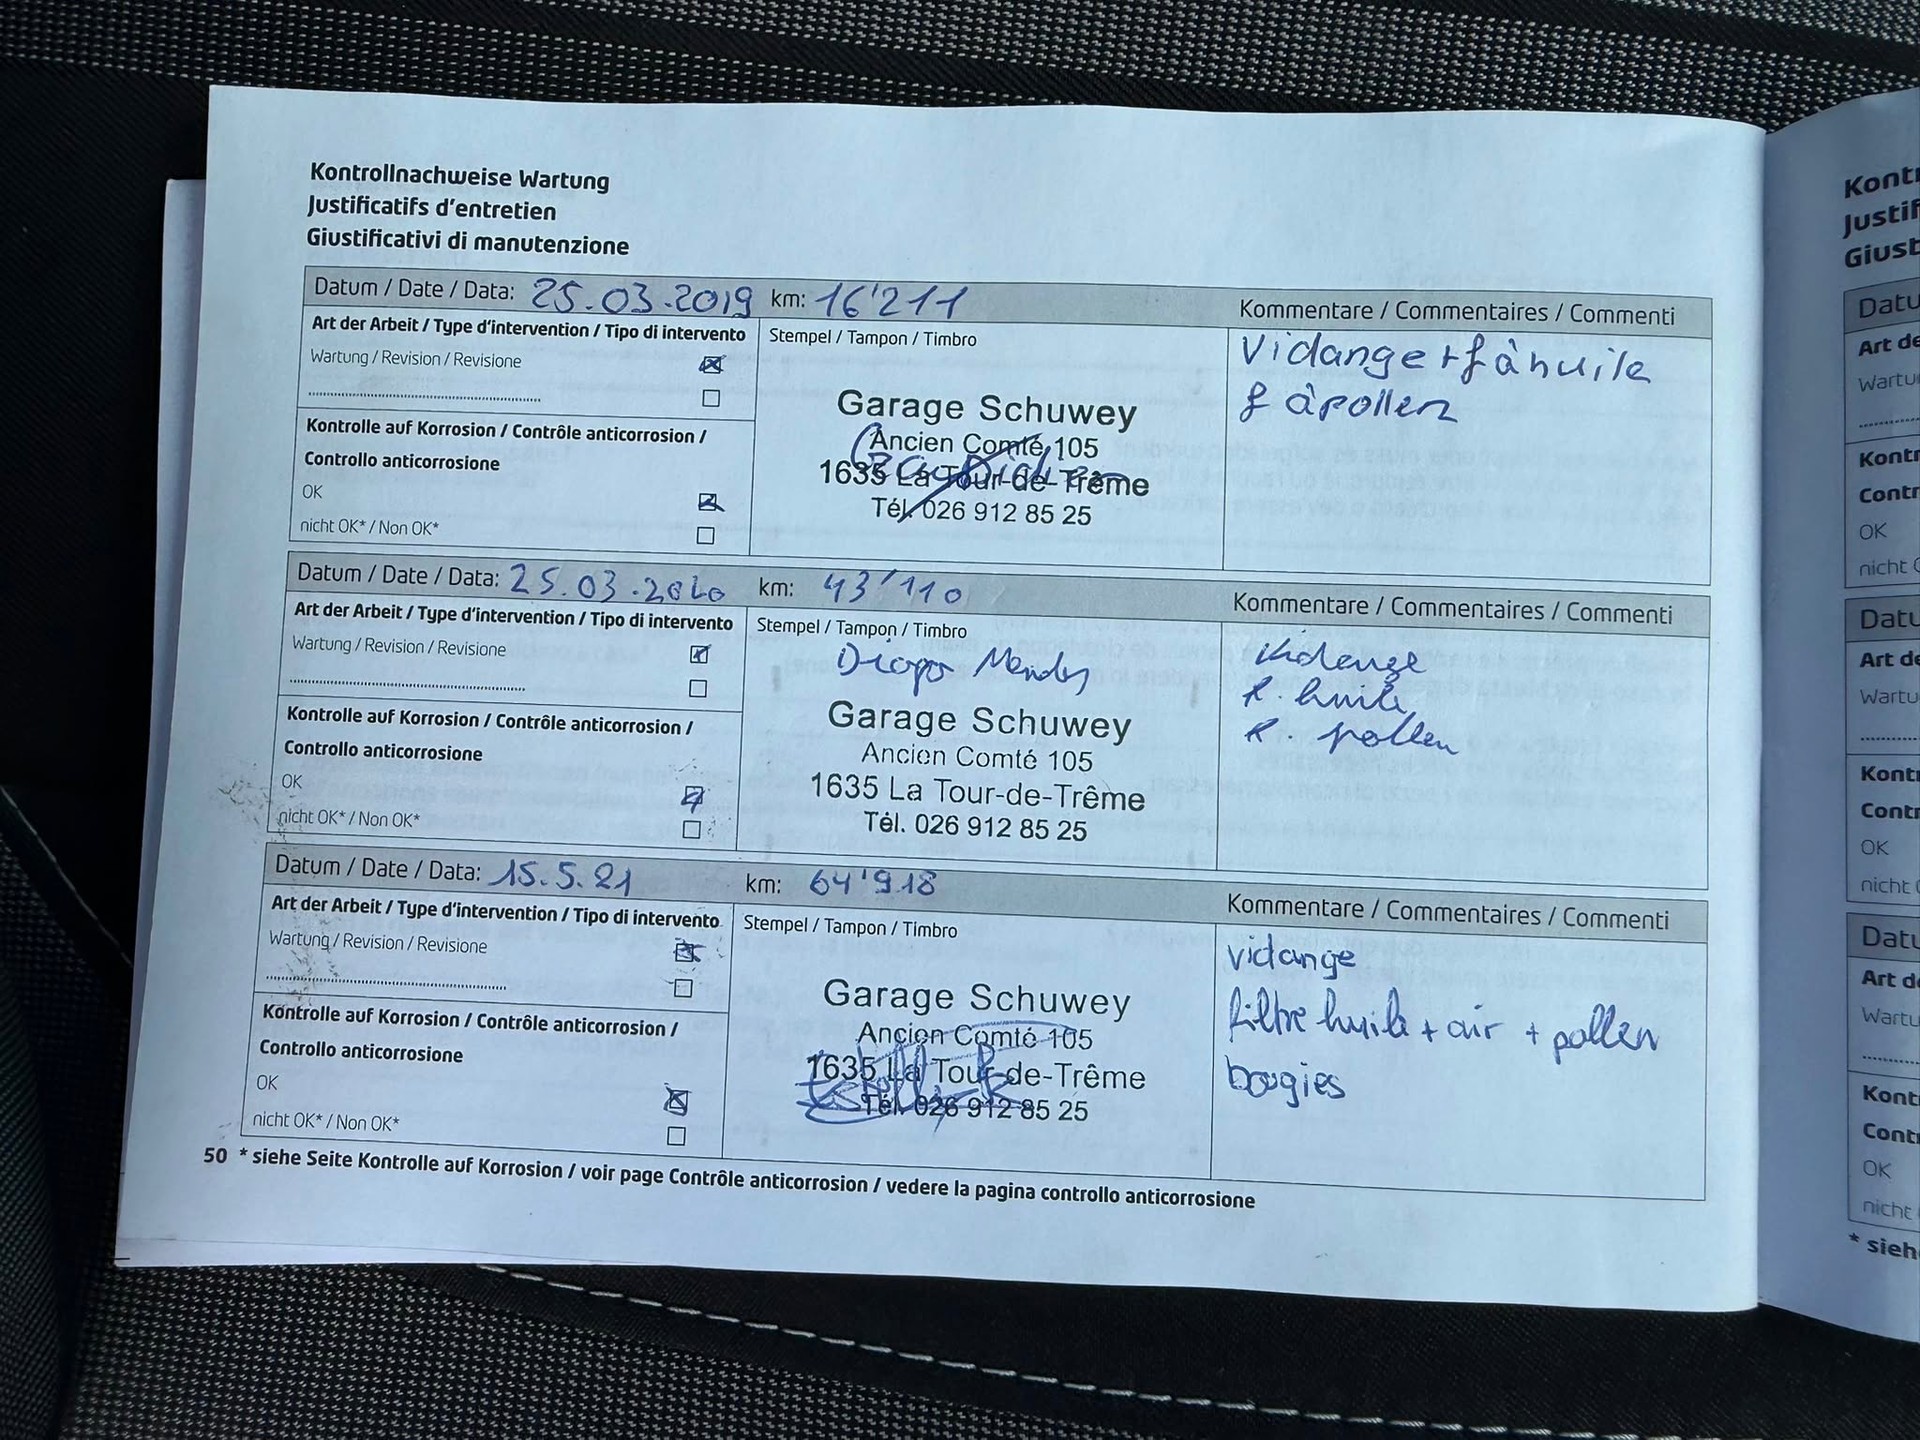 Kontrollnachweise Wartung
Justificatifs d'entretien
Giustificativi di manutenzione
Datum / Date / Data: 25.03.2019 km: 16'211
Kommentare / Commentaires / Commenti
Art der Arbeit / Type d'intervention / Tipo di intervento
Wartung / Revision / Revisione
Kontrolle auf Korrosion / Contrôle anticorrosion /
Controllo anticorrosione
OK
nicht OK* / Non OK*
Stempel / Tampon / Timbro
Garage Schuwey
Ancien Comté 105
1635 La Tour-de-Trême
Tél. 026 912 85 25
Vidange + f à huile
f à pollen
Datum / Date / Data: 25.03.2020 km: 43'110
Kommentare / Commentaires / Commenti
Art der Arbeit / Type d'intervention / Tipo di intervento
Wartung / Revision / Revisione
Kontrolle auf Korrosion / Contrôle anticorrosion /
Controllo anticorrosione
OK
nicht OK* / Non OK*
Stempel / Tampon / Timbro
Diogo Mendes
Garage Schuwey
Ancien Comté 105
1635 La Tour-de-Trême
Tél. 026 912 85 25
Vidange
f. huile
f. pollen
Datum / Date / Data: 15.5.21 km: 64'918
Kommentare / Commentaires / Commenti
Art der Arbeit / Type d'intervention / Tipo di intervento
Wartung / Revision / Revisione
Kontrolle auf Korrosion / Contrôle anticorrosion /
Controllo anticorrosione
OK
nicht OK* / Non OK*
Stempel / Tampon / Timbro
Garage Schuwey
Ancien Comté 105
1635 La Tour-de-Trême
Tél. 026 912 85 25
vidange
filtre huile + air + pollen
bougies
50 * siehe Seite Kontrolle auf Korrosion / voir page Contrôle anticorrosion / vedere la pagina controllo anticorrosione
Kontr
Justif
Giust
Datu
Art de
Wartu
Kontr
Contr
OK
nicht O
Datu
Art de
Wartu
Kontr
Contr
OK
nicht
Datu
Art de
Wartu
Kont
Cont
OK
nicht
* sieh